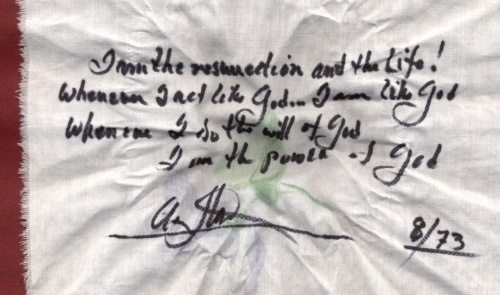 I am the resurrection and the Life!
Whenever I act like God... I am like God
Whenever I do the will of God
I am the power of God
8/73